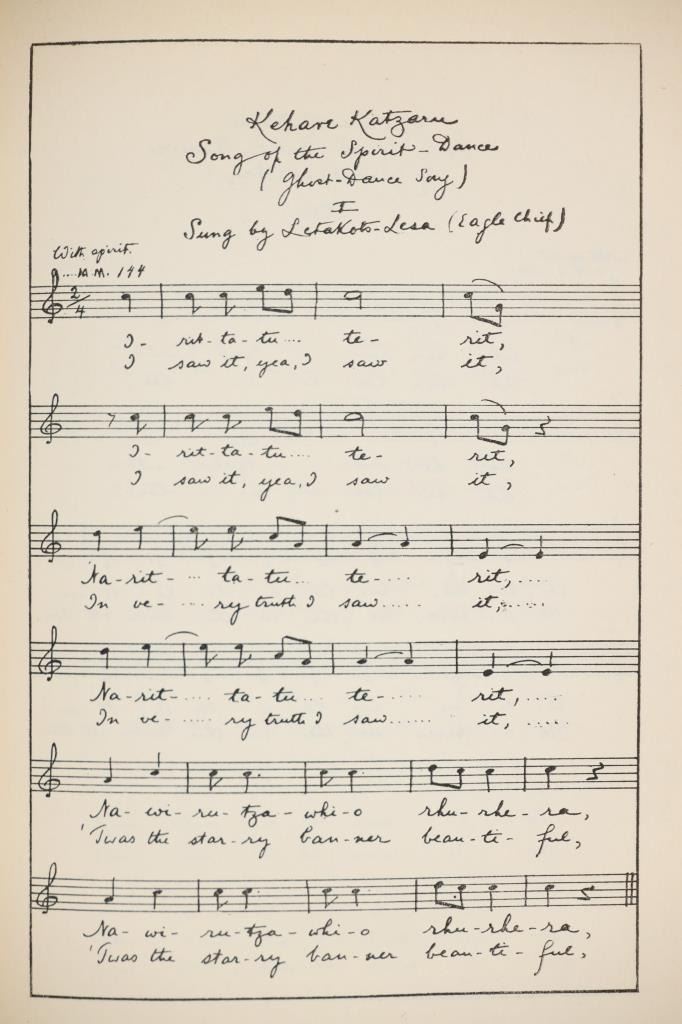 Kehare Katzaru
Song of the Spirit-Dance
(Ghost-Dance Song)
I
Sung by Letakots-Lesa (Eagle Chief)
With spirit.
....M.M. 144
2/4
I- rit-ta-tu.... te- rit,
I saw it, yea, I saw it,
I- rit-ta-tu.... te- rit,
I saw it, yea, I saw it,
Na-rit-... ta-tu... te-.... rit,....
In ve-....ry truth I saw..... it,......
Na-rit-.... ta-tu... te-..... rit,....
In ve-.....ry truth I saw...... it, .....
Na-wi-ru-tza-whi-o rhu-rhe-ra,
'Twas the star-ry ban-ner beau-ti-ful,
Na-wi-ru-tza-whi-o rhu-rhe-ra,
'Twas the star-ry ban-ner beau-ti-ful,